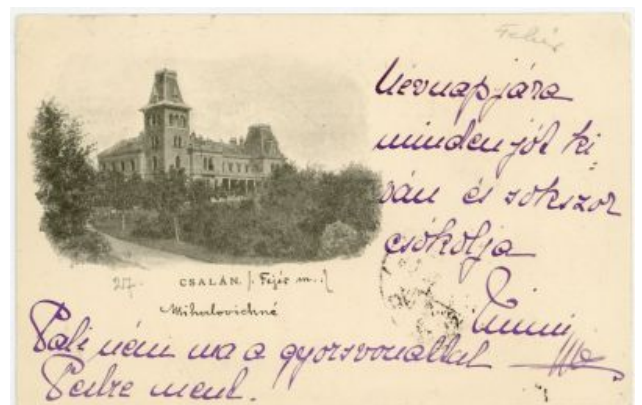 Fehér
Névnapjára
minden jót ki-
ván és sokszor
csókolja
Mimi
217.
CSALÁN. (Fejér m.)
Mihalovichné
Pali néni ma a gyorsvonattal
Pestre ment.